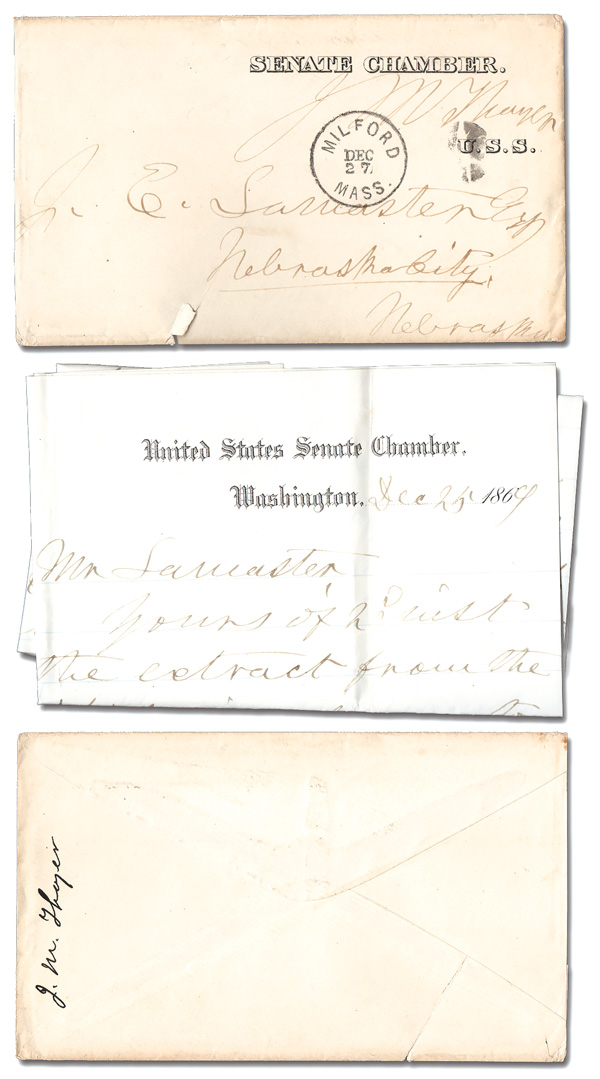 SENATE CHAMBER.
J M Thayer
U.S.S.
MILFORD
DEC
27
MASS.
J. E. Lancaster Esq
Nebraska City,
Nebraska
United States Senate Chamber.
Washington, Dec 25 1869
Mr Lancaster
Yours of 2d inst
the extract from the
J. M. Thayer